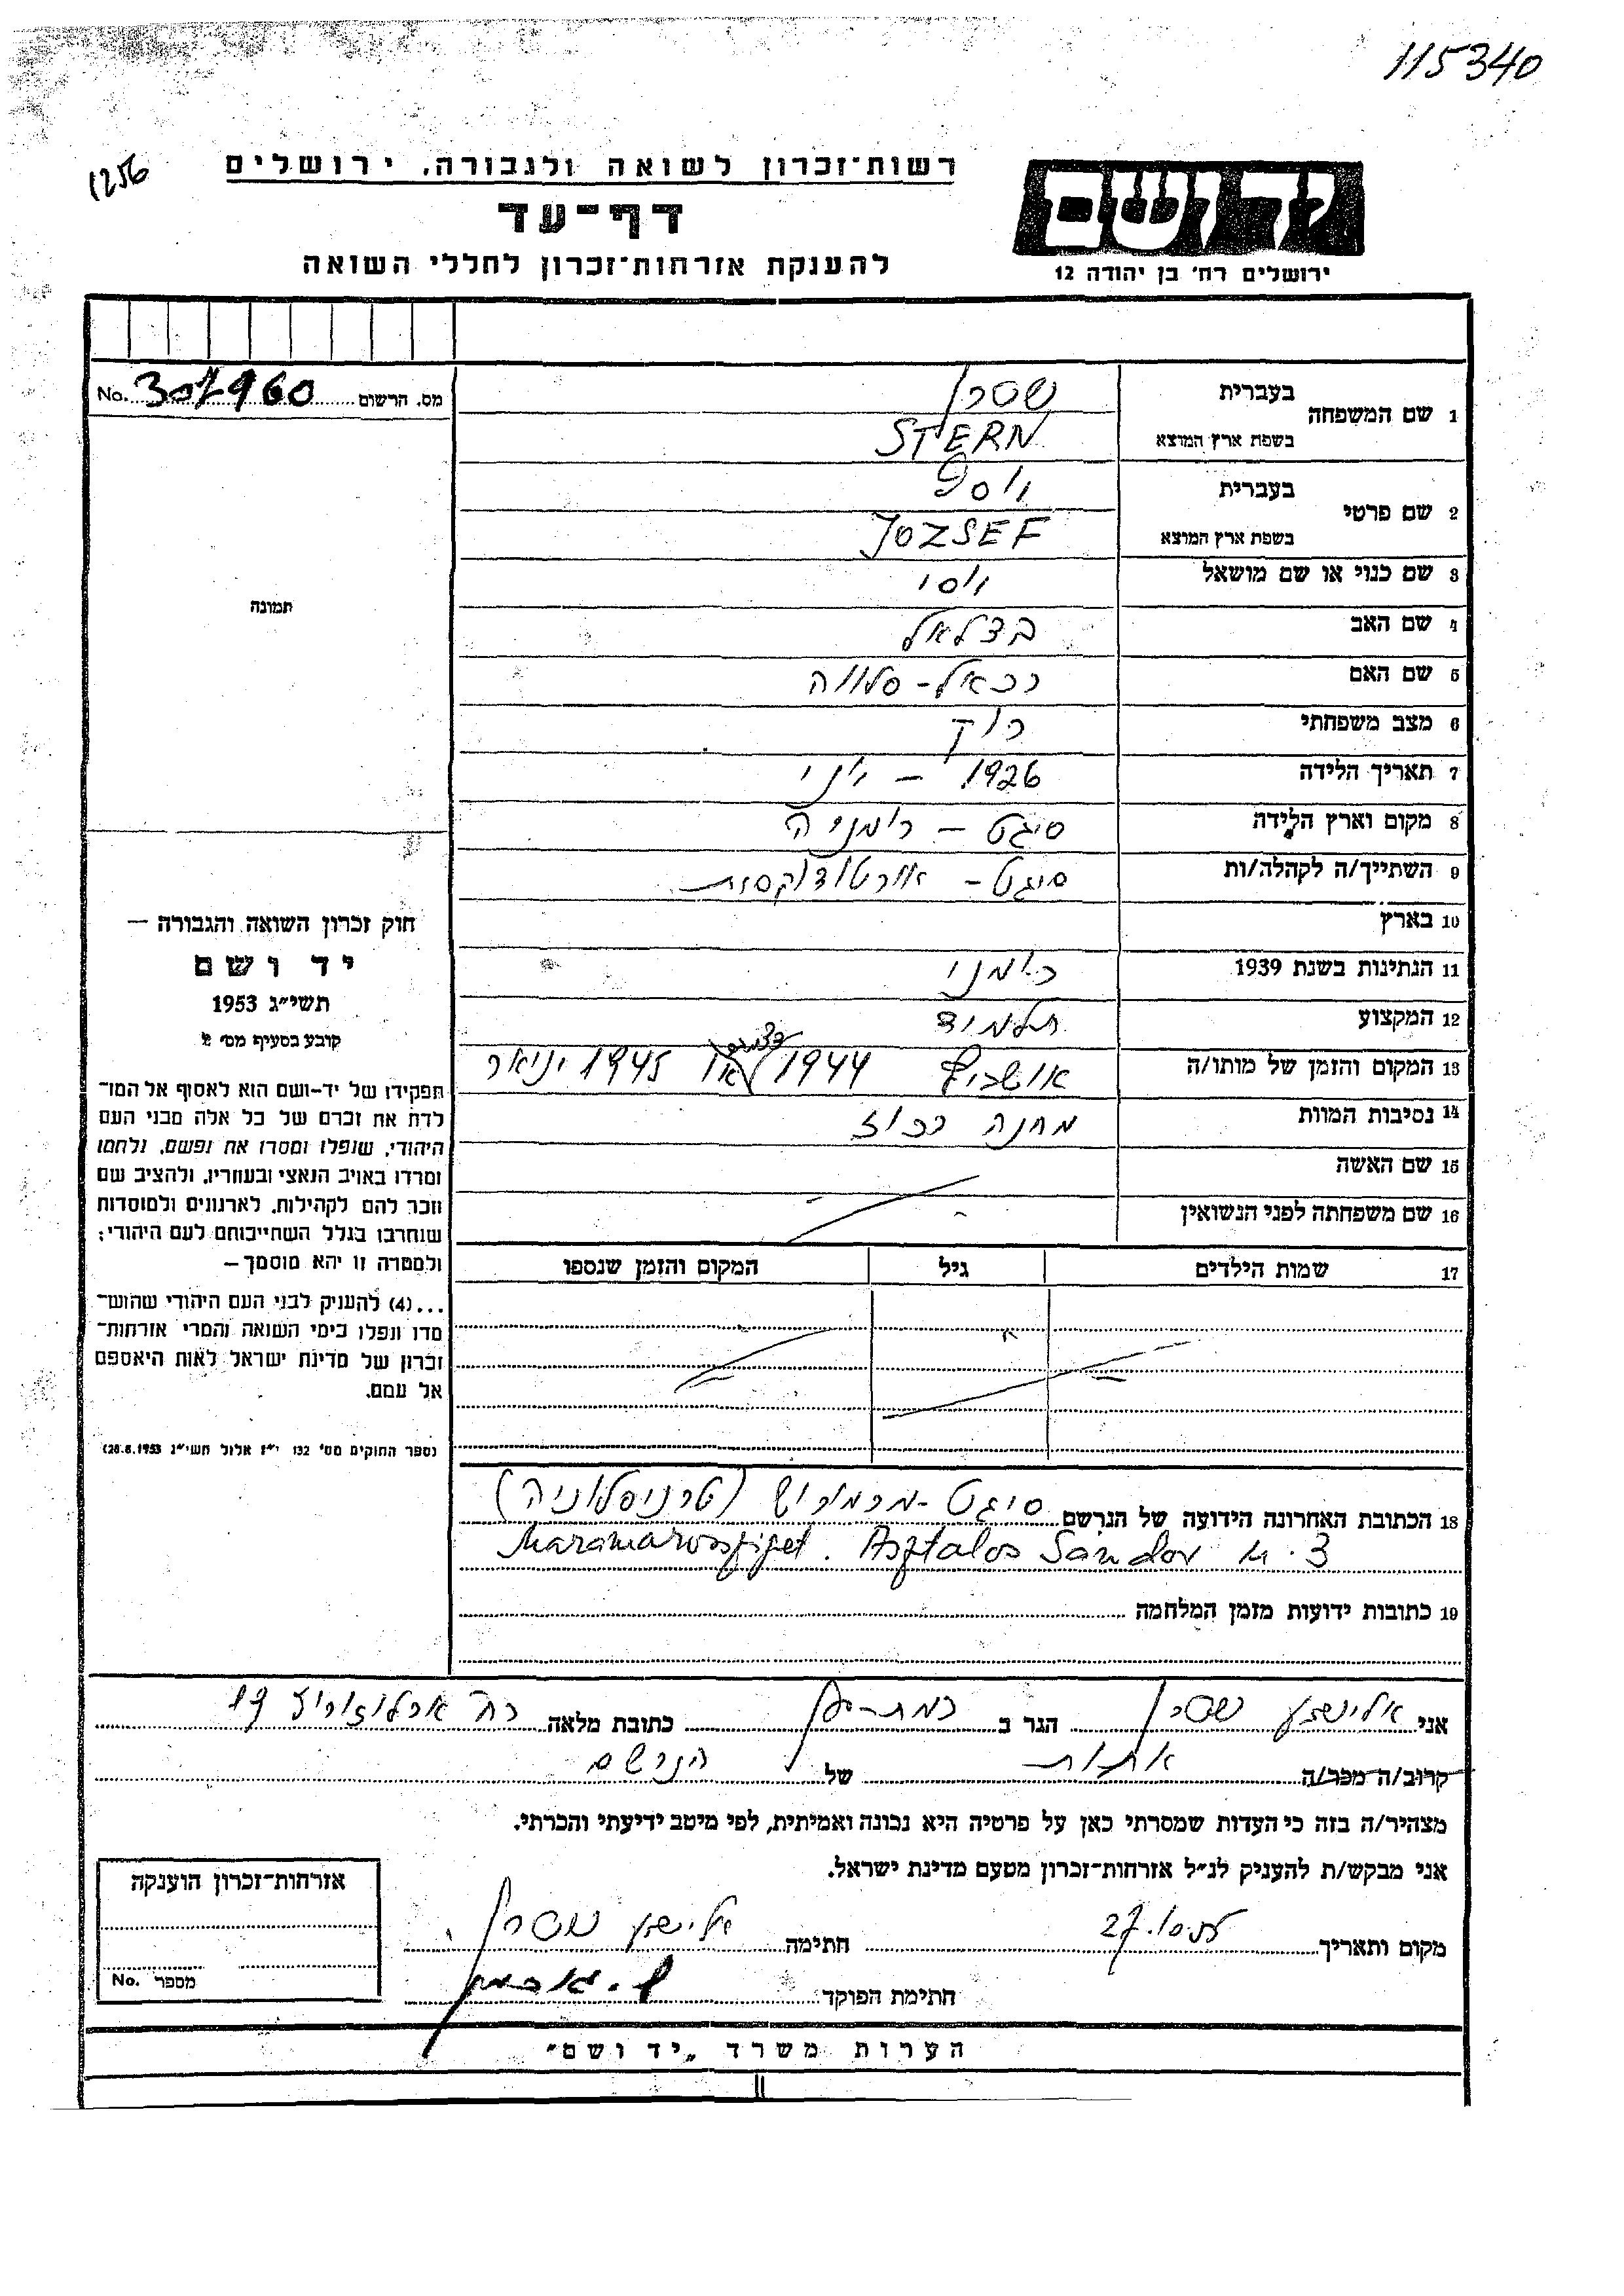 115340
1256
רשות־זכרון לשואה ולגבורה, ירושלים
דף־עד
להענקת אזרחות־זכרון לחללי השואה
יד ושם
ירושלים רח' בן יהודה 12
מס. הרשום 307960 No.
1 שם המשפחה בעברית שטרן
בשפת ארץ המוצא STERN
2 שם פרטי בעברית יוסף
בשפת ארץ המוצא JOZSEF
3 שם כנוי או שם מושאל יוסי
4 שם האב בצלאל
5 שם האם
6 מצב משפחתי רוק
7 תאריך הלידה 1926 – יוני
8 מקום וארץ הלידה סיגט – רומניה
9 השתייך/ה לקהלה/ות סיגט – אורטודוקסית
10 בארץ
11 הנתינות בשנת 1939 רומני
12 המקצוע תלמיד
13 המקום והזמן של מותו/ה אושביץ 1944 דצמבר או 1945 ינואר
14 נסיבות המוות מחנה רכוז
15 שם האשה
16 שם משפחתה לפני הנשואין
17 שמות הילדים גיל המקום והזמן שנספו
18 הכתובת האחרונה הידועה של הנרשם סיגט - מרמורוש (טרנסילוניה)
Maramarossziget. Asztalos Sándor u. 3
19 כתובות ידועות מזמן המלחמה
תמונה
חוק זכרון השואה והגבורה —
יד ושם
תשי״ג 1953
קובע בסעיף מס' 2
תפקידו של יד-ושם הוא לאסוף אל המו־
לדת את זכרם של כל אלה מבני העם
היהודי, שנפלו ומסרו את נפשם, נלחמו
ומרדו באויב הנאצי ובעוזריו, ולהציב שם
וזכר להם לקהילות, לארגונים ולמוסדות
שנחרבו בגלל השתייכותם לעם היהודי;
ולמטרה זו יהא מוסמך —
...(4) להעניק לבני העם היהודי שהוש־
מדו ונפלו בימי השואה והמרי אזרחות־
זכרון של מדינת ישראל לאות היאספם
אל עמם.
(ספר החוקים מס' 132 י״ז אלול תשי״ג 28.8.1953)
אני אלישע שטרן הגר ב רמת-גן כתובת מלאה רח ארלוזורוב 19
קרוב/ה מכר/ה אחות של הנרשם
מצהיר/ה בזה כי העדות שמסרתי כאן על פרטיה היא נכונה ואמיתית, לפי מיטב ידיעתי והכרתי.
אני מבקש/ת להעניק לנ״ל אזרחות־זכרון מטעם מדינת ישראל.
מקום ותאריך 27.10.55 חתימה אלישע שטרן
חתימת הפוקד
אזרחות־זכרון הוענקה
מספר No.
הערות משרד „יד ושם״